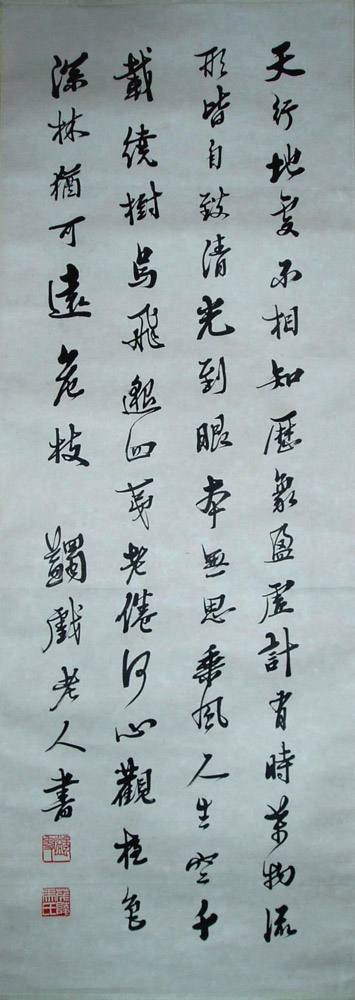 天行地處不相知歷象盈虛計有時萬物流
形皆自致清光到眼本無思乘風人生空千
載繞樹烏飛邈四夷老倦何心觀桂色
深林猶可遠危枝 蠲戲老人書
蠲叟